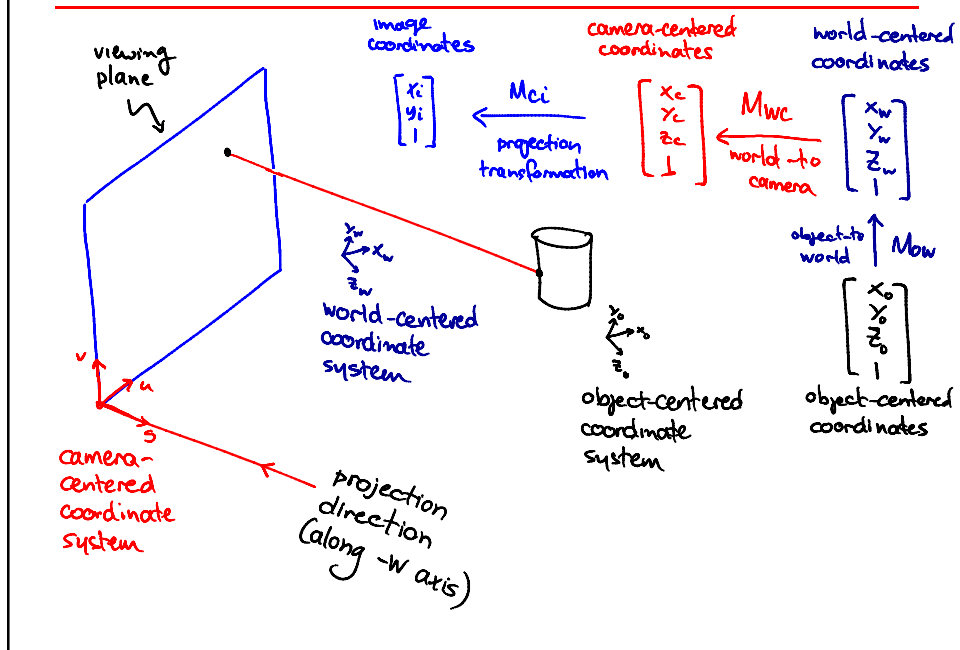 viewing
plane
image
coordinates
xi
yi
1
Mci
projection
transformation
camera-centered
coordinates
xc
yc
zc
1
Mwc
world-to
camera
world-centered
coordinates
xw
yw
zw
1
object-to
world
Mow
xo
yo
zo
1
object-centered
coordinates
yw
xw
zw
world-centered
coordinate
system
yo
xo
zo
object-centered
coordinate
system
v
u
s
camera-
centered
coordinate
system
projection
direction
(along -w axis)